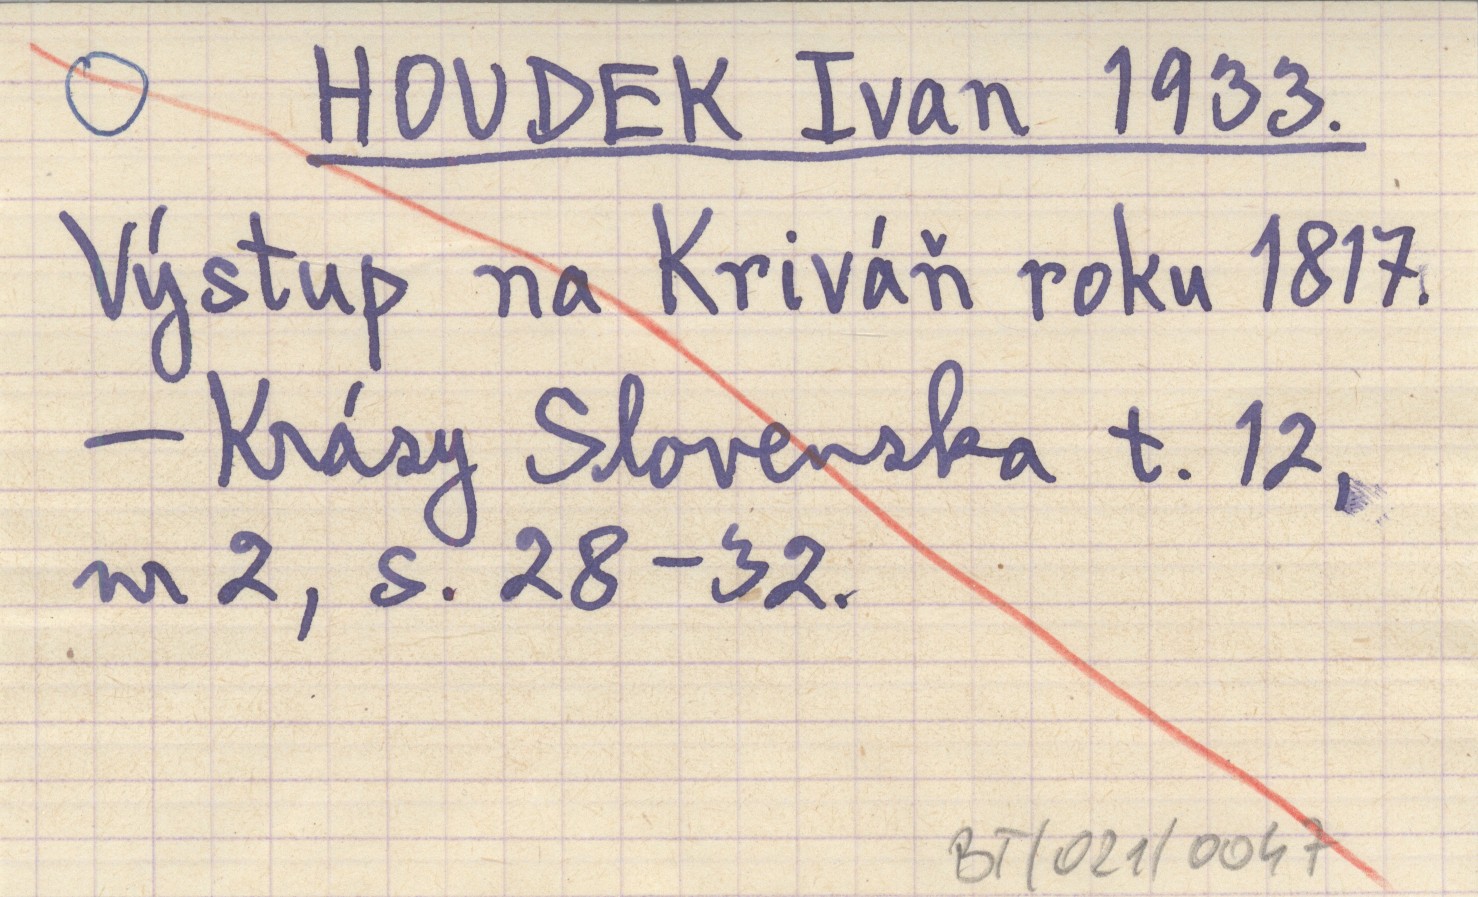 HOUDEK Ivan 1933.
Výstup na Kriváň roku 1817.
— Krásy Slovenska t. 12,
nr 2, s. 28-32.
BT/021/0047